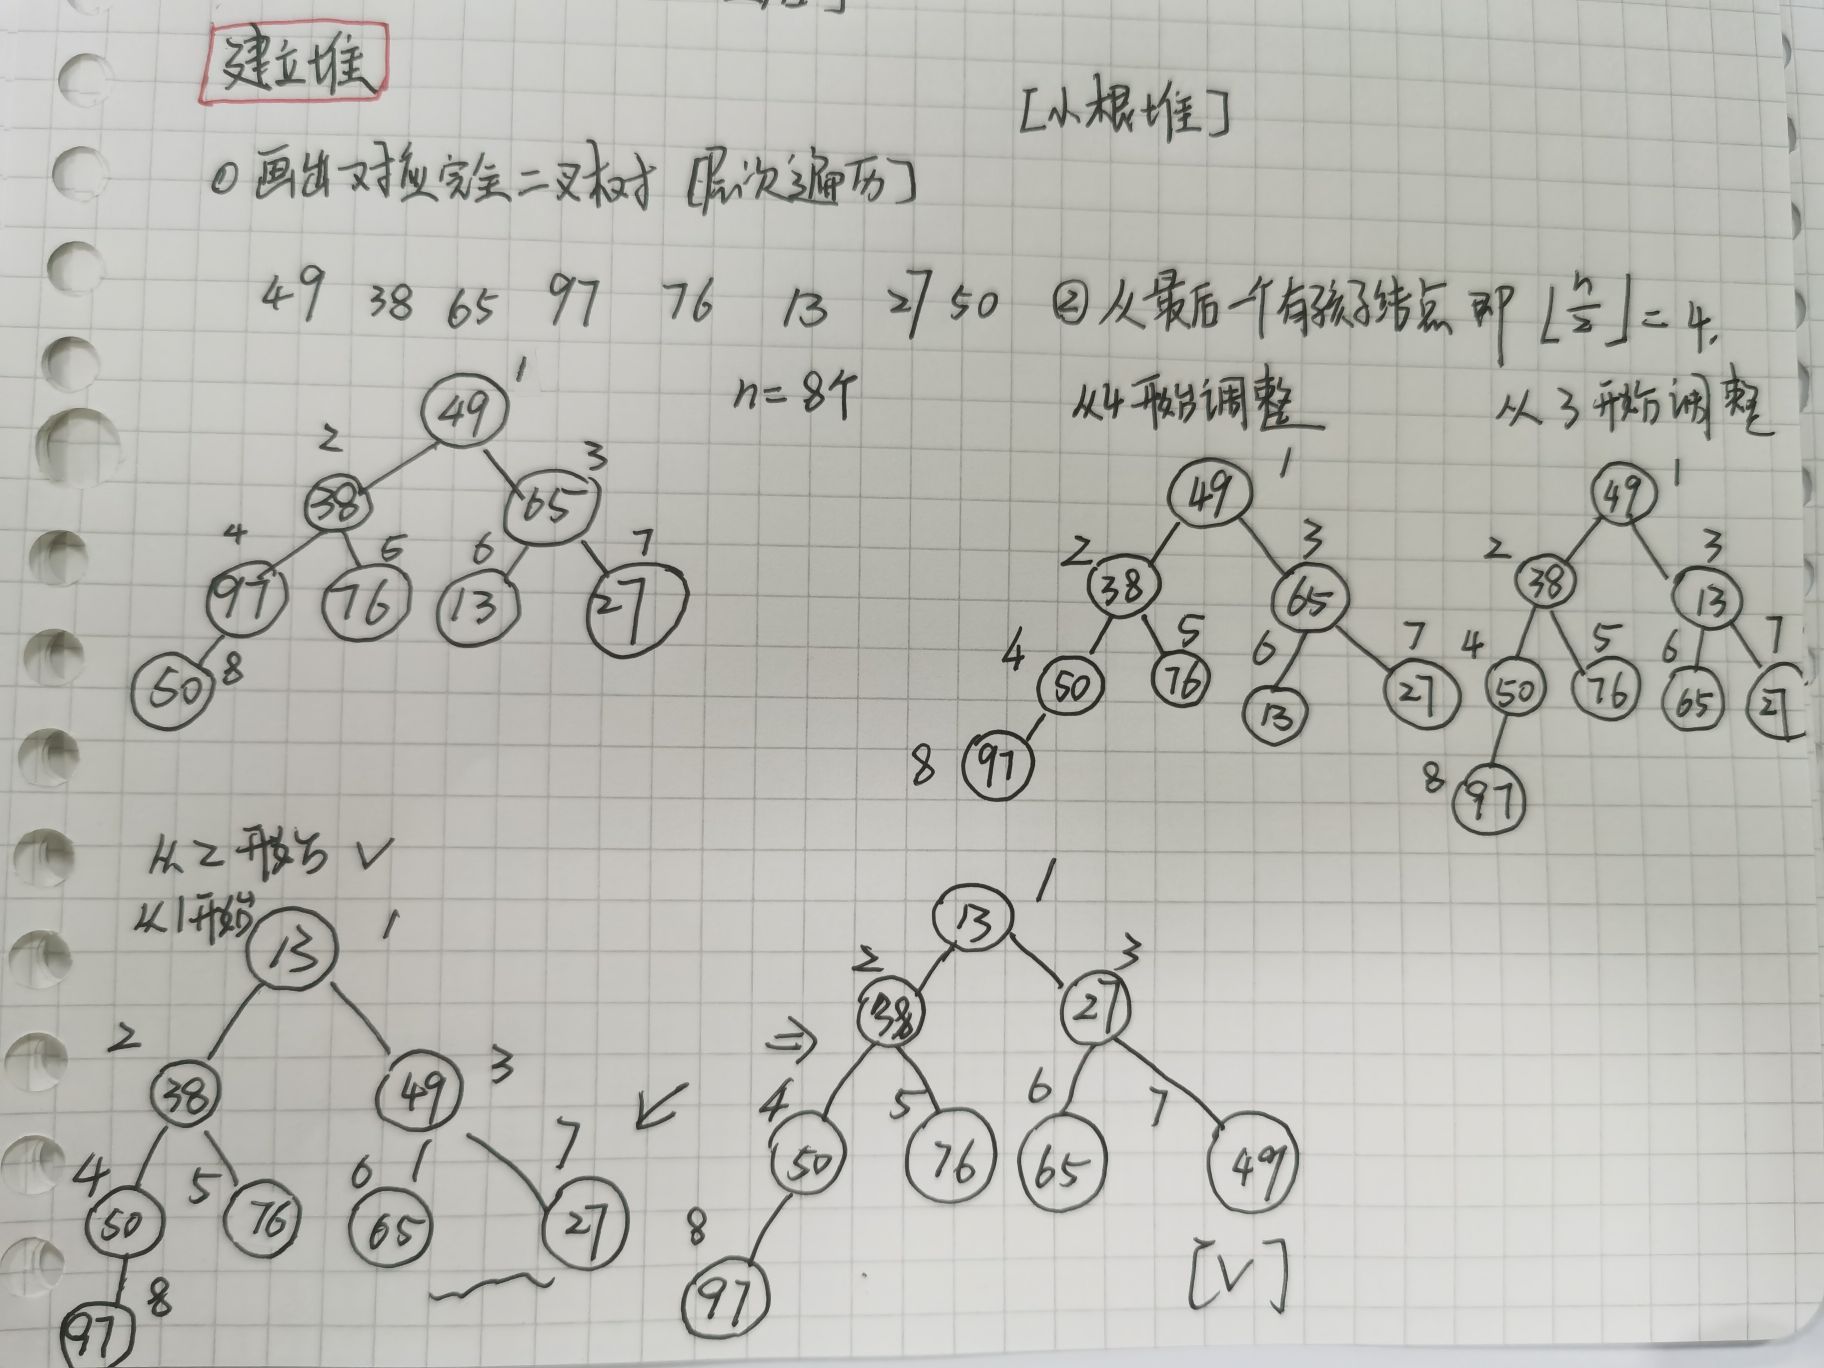 建立堆
[小根堆]
① 画出对应完全二叉树 [层次遍历]
49 38 65 97 76 13 27 50
n=8个
② 从最后一个有孩子结点 即 ⌊n/2⌋=4.
从4开始调整
从3开始调整
1
49
2 3
38 65
4 5 6 7
97 76 13 27
50 8
1
49
2 3
38 65
4 5 6 7
50 76 13 27
8 97
1
49
2 3
38 13
4 5 6 7
50 76 65 27
8 97
从2开始 √
从1开始
13 1
2 3
38 49
4 5 6 7
50 76 65 27
97 8
⇒
1
13
2 3
38 27
4 5 6 7
50 76 65 49
8
97
[√]